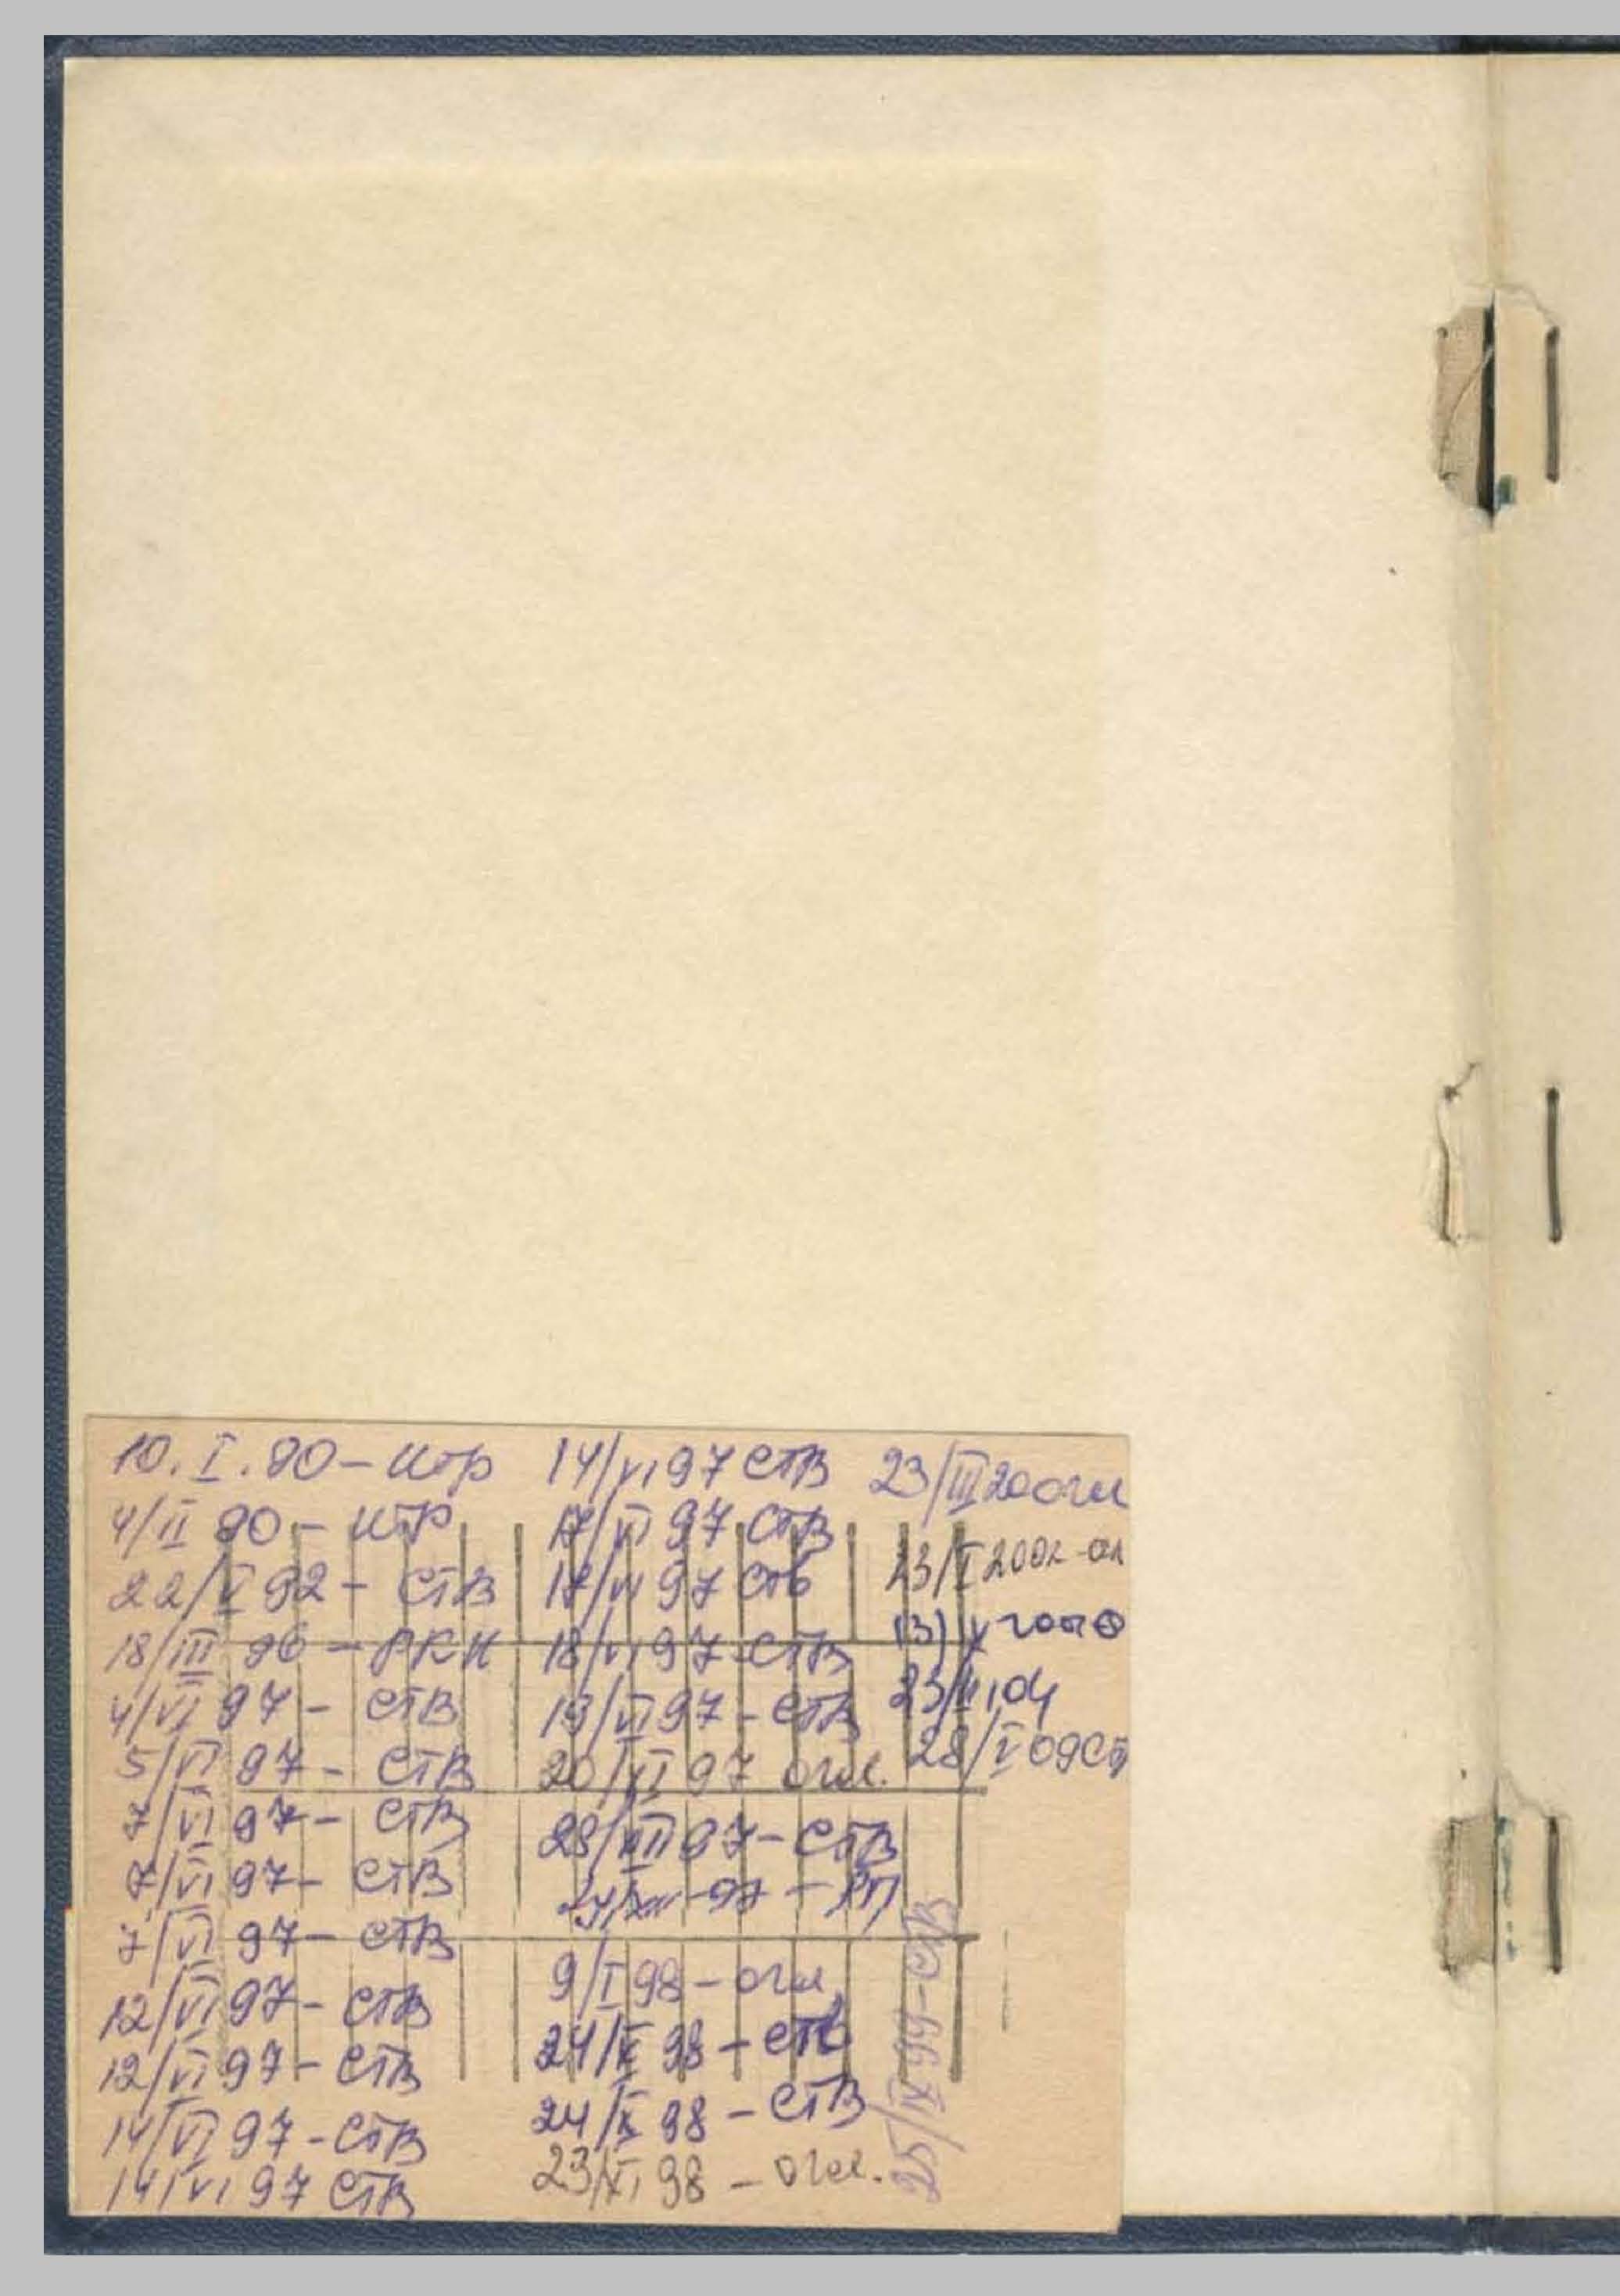 10. I. 90 – итр
4/II 90 – итр
22/V 92 – СТВ
18/III 96 – РКН
4/VI 97 – СТВ
5/VI 97 – СТВ
7/VI 97 – СТВ
7/VI 97 – СТВ
7/VI 97 – СТВ
12/VI 97 – СТВ
12/VI 97 – СТВ
14/VI 97 – СТВ
14/VI 97 СТВ
14/VI 97 СТВ
17/VI 97 СТВ
17/VI 97 Ств
18/VI 97 – СТВ
19/VI 97 – СТВ
20/XI 97 огл.
28/XII 97 – СТВ
97 – РП
9/I 98 – огл
24/X 98 – СТВ
24/X 98 – СТВ
23/XI 98 – огл.
23/III 20
23/I 200
23/II 04
28/V 09 Ст
25/IX 99 – СТВ